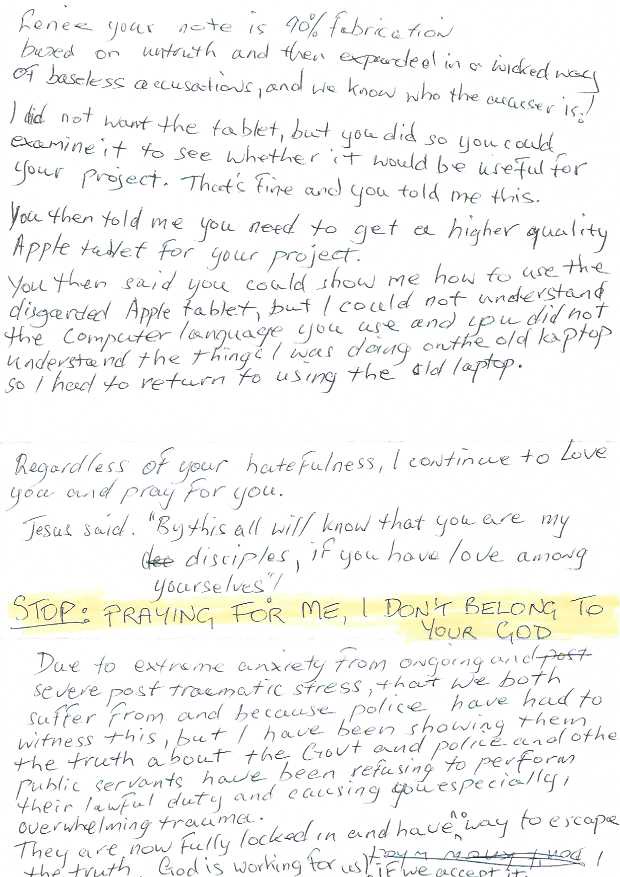 Lenee your note is 90% fabrication
based on untruth and then expanded in a wicked way
of baseless accusations, and we know who the accuser is!
I did not want the tablet, but you did so you could
examine it to see whether it would be useful for
your project. That's fine and you told me this.
You then told me you need to get a higher quality
Apple tablet for your project.
You then said you could show me how to use the
disgarded Apple tablet, but I could not understand
the computer language you use and you did not
understand the things I was doing on the old laptop
so I had to return to using the old laptop.
Regardless of your hatefulness, I continue to Love
you and pray for you.
Jesus said. "By this all will know that you are my
disciples, if you have love among
yourselves"!
STOP: PRAYING FOR ME, I DON'T BELONG TO
YOUR GOD
Due to extreme anxiety from ongoing and post
severe post traematic stress, that we both
suffer from and because police have had to
witness this, but I have been showing them
the truth about the Govt and police and othe
public servants have been refusing to perform
their lawful duty and causing you especially,
overwhelming trauma.
They are now fully locked in and have no way to escape
the truth. God is working for us! if we accept it.